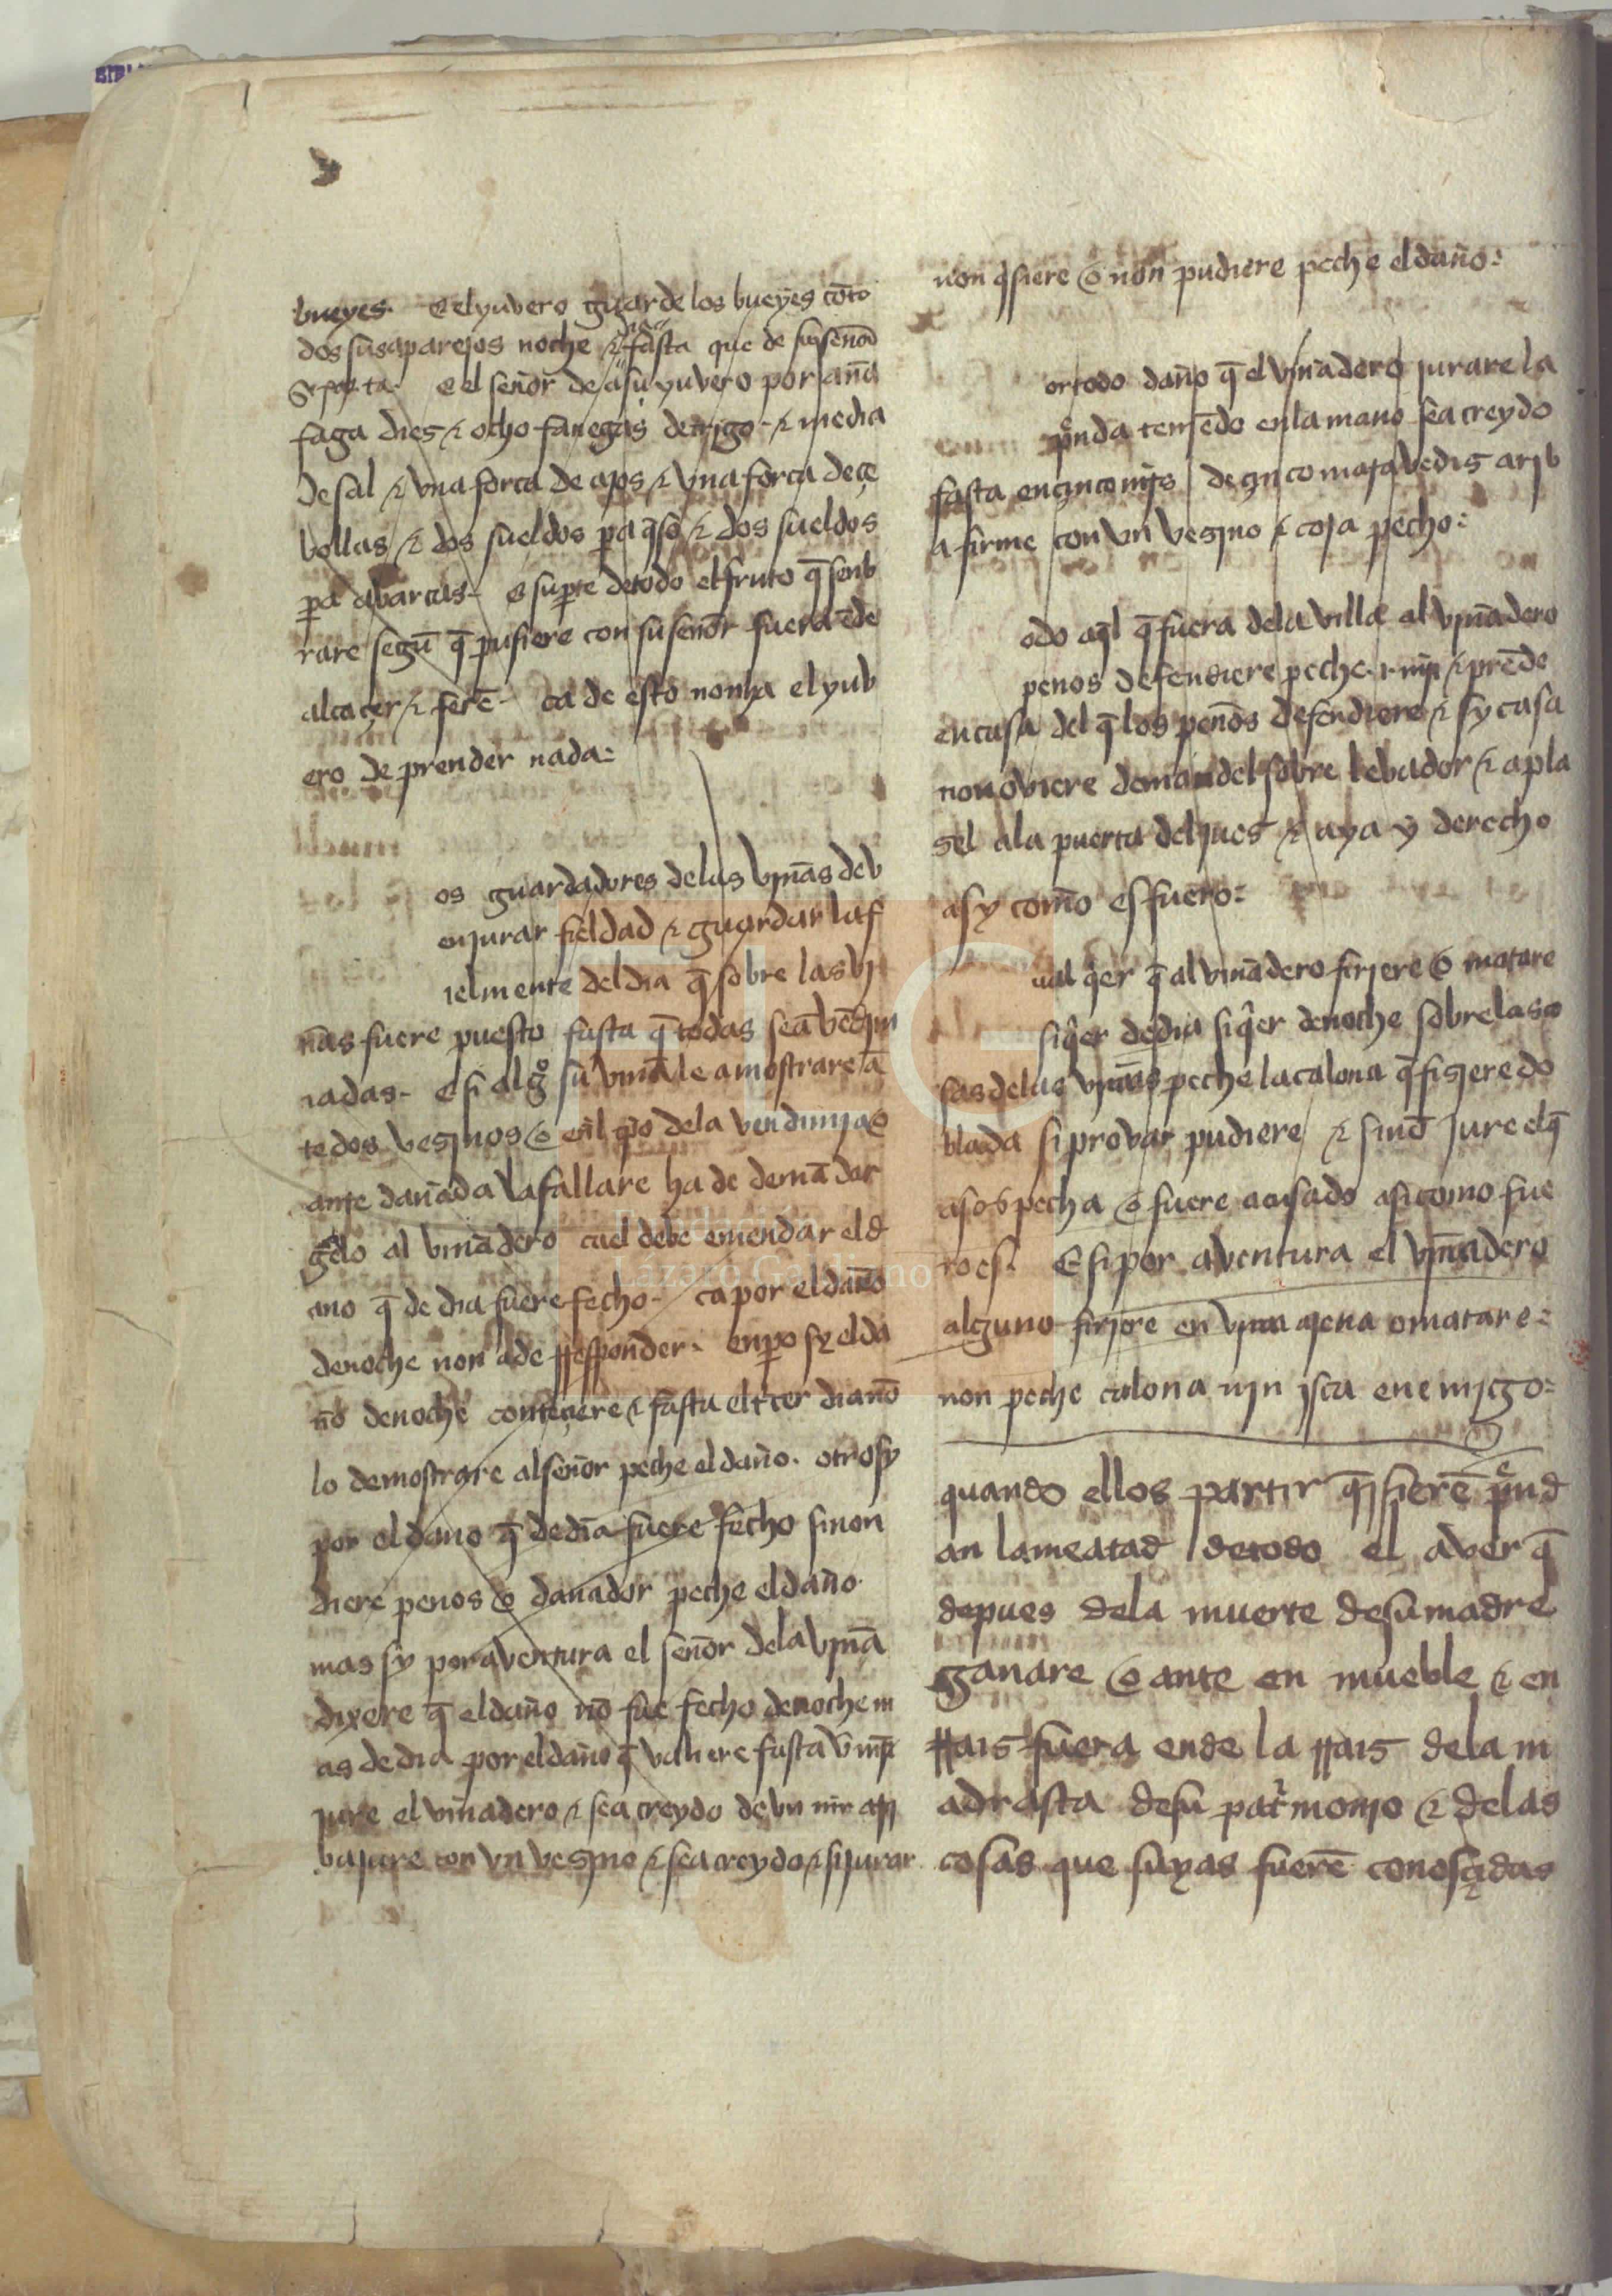 bueyes. E el yuvero guarde los bueyes cõ to
dos sus aparejos noche & dia fasta que de su señor
se parta. E el señor de a su yuvero por aña
faga dies & ocho fanegas de trigo & media
de sal & vna forca de ajos & vna forca de çe
bollas & dos sueldos pa q̃so & dos sueldos
pa abarcas. E su pte de todo el fruto q̃ senb
rare segũ q̃ pusiere con su señor fuera ẽde
alcaçer & ferẽ. ca de esto non ha el yub
ero de prender nada:
os guardadores delas viñas dev
en jurar fieldad & guardar las f
ielmente del dia q̃ sobre las vi
ñas fuere puesto fasta q̃ todas seã vẽdim
iadas. E si algo su viña le amostrare ã
te dos vesinos o enl qto dela vendimia o
ante dañada la fallare ha de demãdar
gelo al viñadero ca el debe emendar el d
año q̃ de dia fuere fecho. ca por el daño
de noche non a de rresponder. enpo sy el da
ño de noche conteçiere & fasta el tcer dia nõ
lo demostrare al señor peche el daño. otrosy
por el daño q̃ de dia fuere fecho sinon
diere peños o dañador peche el daño.
mas sy por aventura el señor dela viña
dixere q̃ el daño nõ fue fecho de noche m
as de dia por el daño q̃ valiere fasta vn mr
jure el viñadero & sea creydo de vn mr arr
iba jure con vn vesino & sea creydo & si jurar
non q̃siere o non pudiere peche el daño:
or todo daño q̃ el viñadero jurare la
pnda teniẽdo en la mano sea creydo
fasta en çinco mrs de çinco maravedis arib
a firme con vn vesino & coja pecho:
odo aql q̃ fuera dela villa al viñadero
peños defendiere peche .i. mr & prẽde
en casa del q̃ los peños defendiere & sy casa
non oviere demandel sobre lebador & apla
sel a la puerta del jues & aya y derecho
asy como es fuero:
ual qer q̃ al viñadero firiere o matare
siqer de dia siqer de noche sobre las co
sas delas viñas peche la calona q̃ fisiere do
blada si provar pudiere & sinõ jure el q̃
a sospecha o fuere acusado asi como fue
ro es. E si por aventura el viñadero
alguno firiere en viña ajena o matare:
non peche calona nin isca enemigo:
quando ellos partir q̃sierẽ pnd
an la meatad de todo el aver q̃
depues dela muerte de su madre
ganare o ante en mueble & en
rrais fuera ende la rrais dela m
adrasta de su patrmonjo & delas
cosas que suyas fuerẽ conosçidas